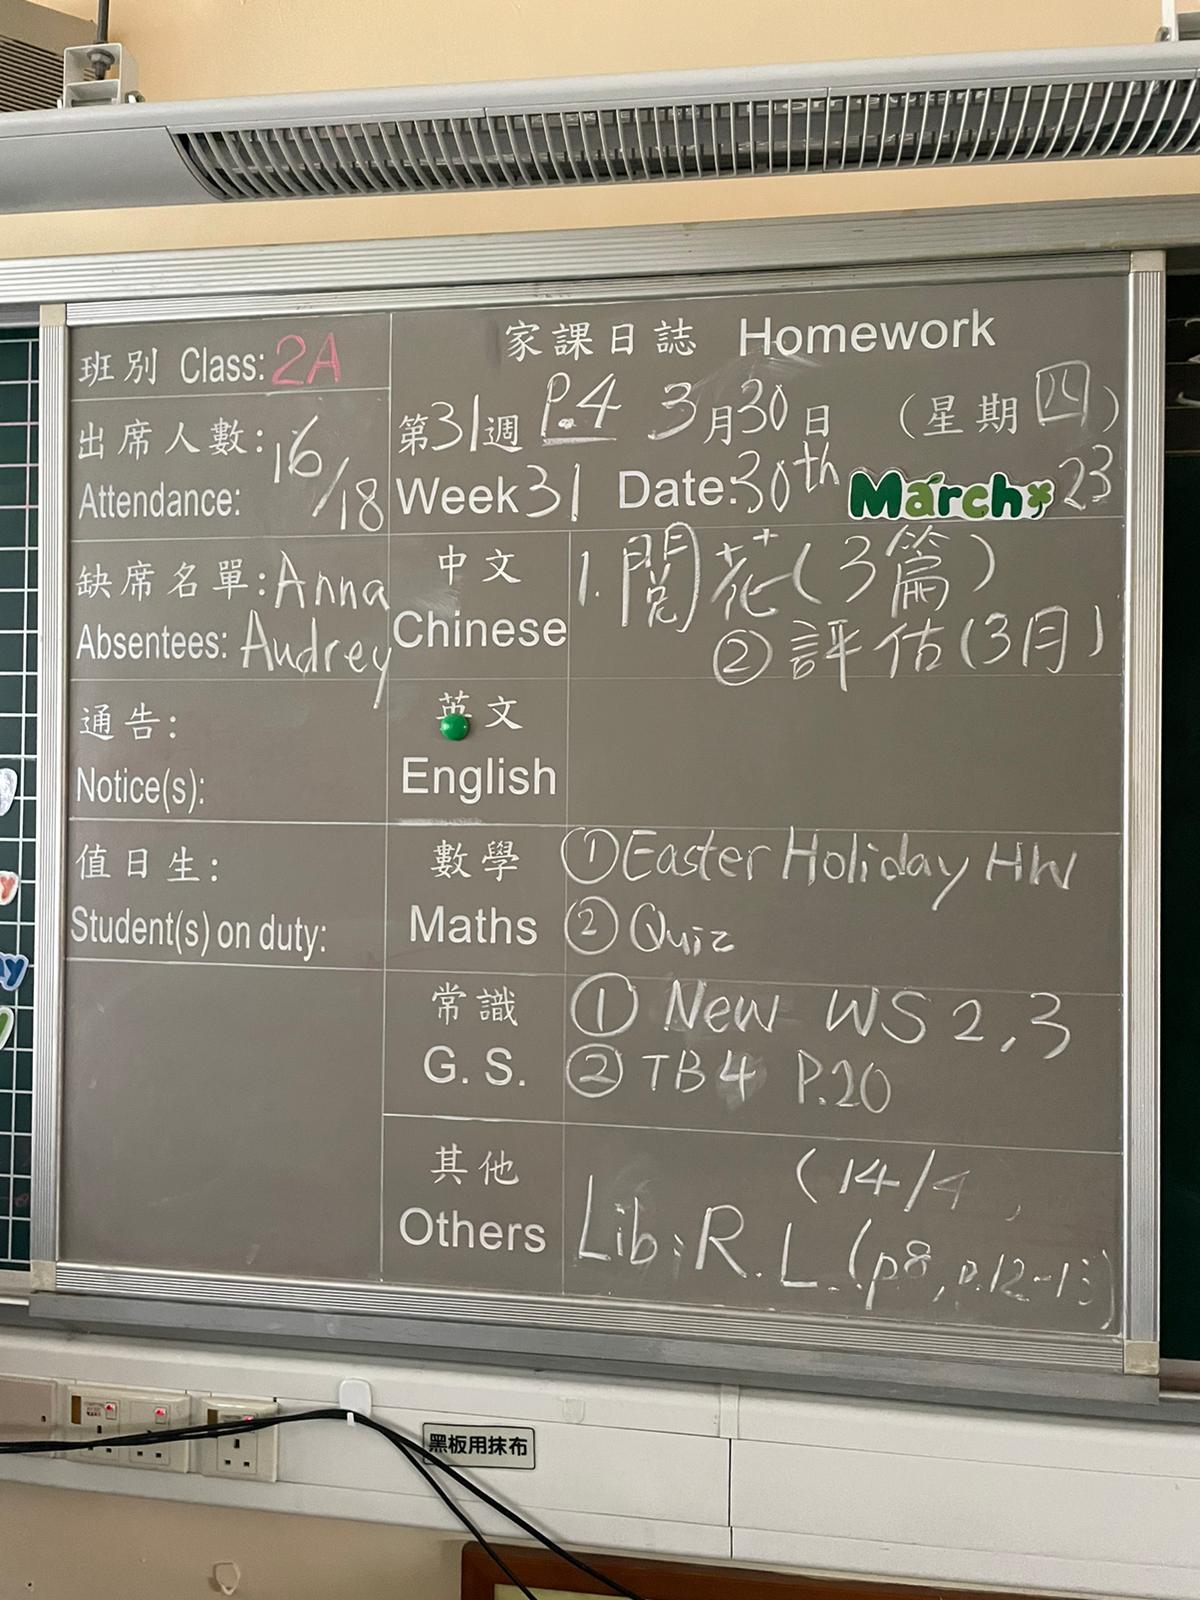 班別 Class: 2A
出席人數: 16/18
Attendance:
缺席名單: Anna
Absentees: Audrey
通告:
Notice(s):
值日生:
Student(s) on duty:
家課日誌 Homework
第31週 P.4 3月30日 (星期四)
Week 31 Date: 30th March 23
中文
Chinese
1. 閱花(3篇)
② 評估(3月)
英文
English
數學
Maths
① Easter Holiday HW
② Quiz
常識
G. S.
① New WS 2,3
② TB4 P.20
其他
Others
(14/4)
Lib: R.L. (p8, p.12-13)
黑板用抹布